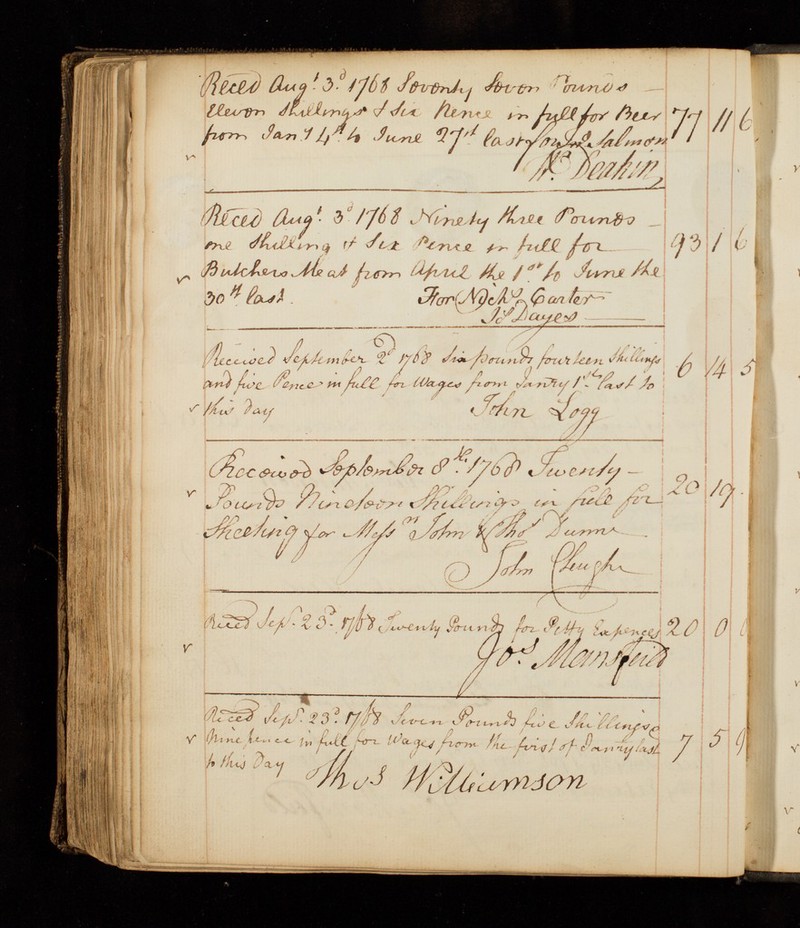 Reced Aug.t 3.d 1768 Seventy Seven Pounds
Eleven Shillings & Six Pence in full for Beer 77 11 6
from Jan.y 4th to June 27th last for Salmon
W.m Deakin
Reced Aug.t 3d 1768 Ninety three Pounds
one Shilling & Six Pence in full for 93 1 6
Butchers Meat from April the 1st to June the
30th last. For Nichs Carter
Js Dayes
Received September 2d 1768 Six pounds fourteen Shillings 6 14 5
and five Pence in full for Wages from Janry 1st last to
this Day John Logg
Received September 8th 1768 Twenty
Pounds Nineteen Shillings in full for 20 19
Sheeting for Messrs John & Thos Dunn
John Cleugh
Reced Sep.r 23d. 1768 Twenty Pounds for Petty Expences 20 0 0
Jos Mansfield
Reced Sep.r 23d. 1768 Seven Pounds five Shillings &
Nine pence in full for Wages from the first of Janry last 7 5 9
to this Day
Thos Williamson